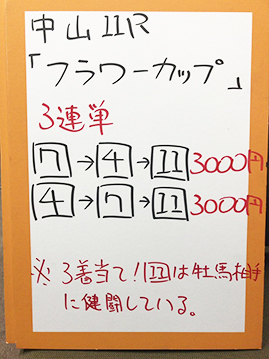 中山11R
「フラワーカップ」
3連単
7→4→11 3000円
4→7→11 3000円
※3着当て!11は牡馬相手
に健闘している。